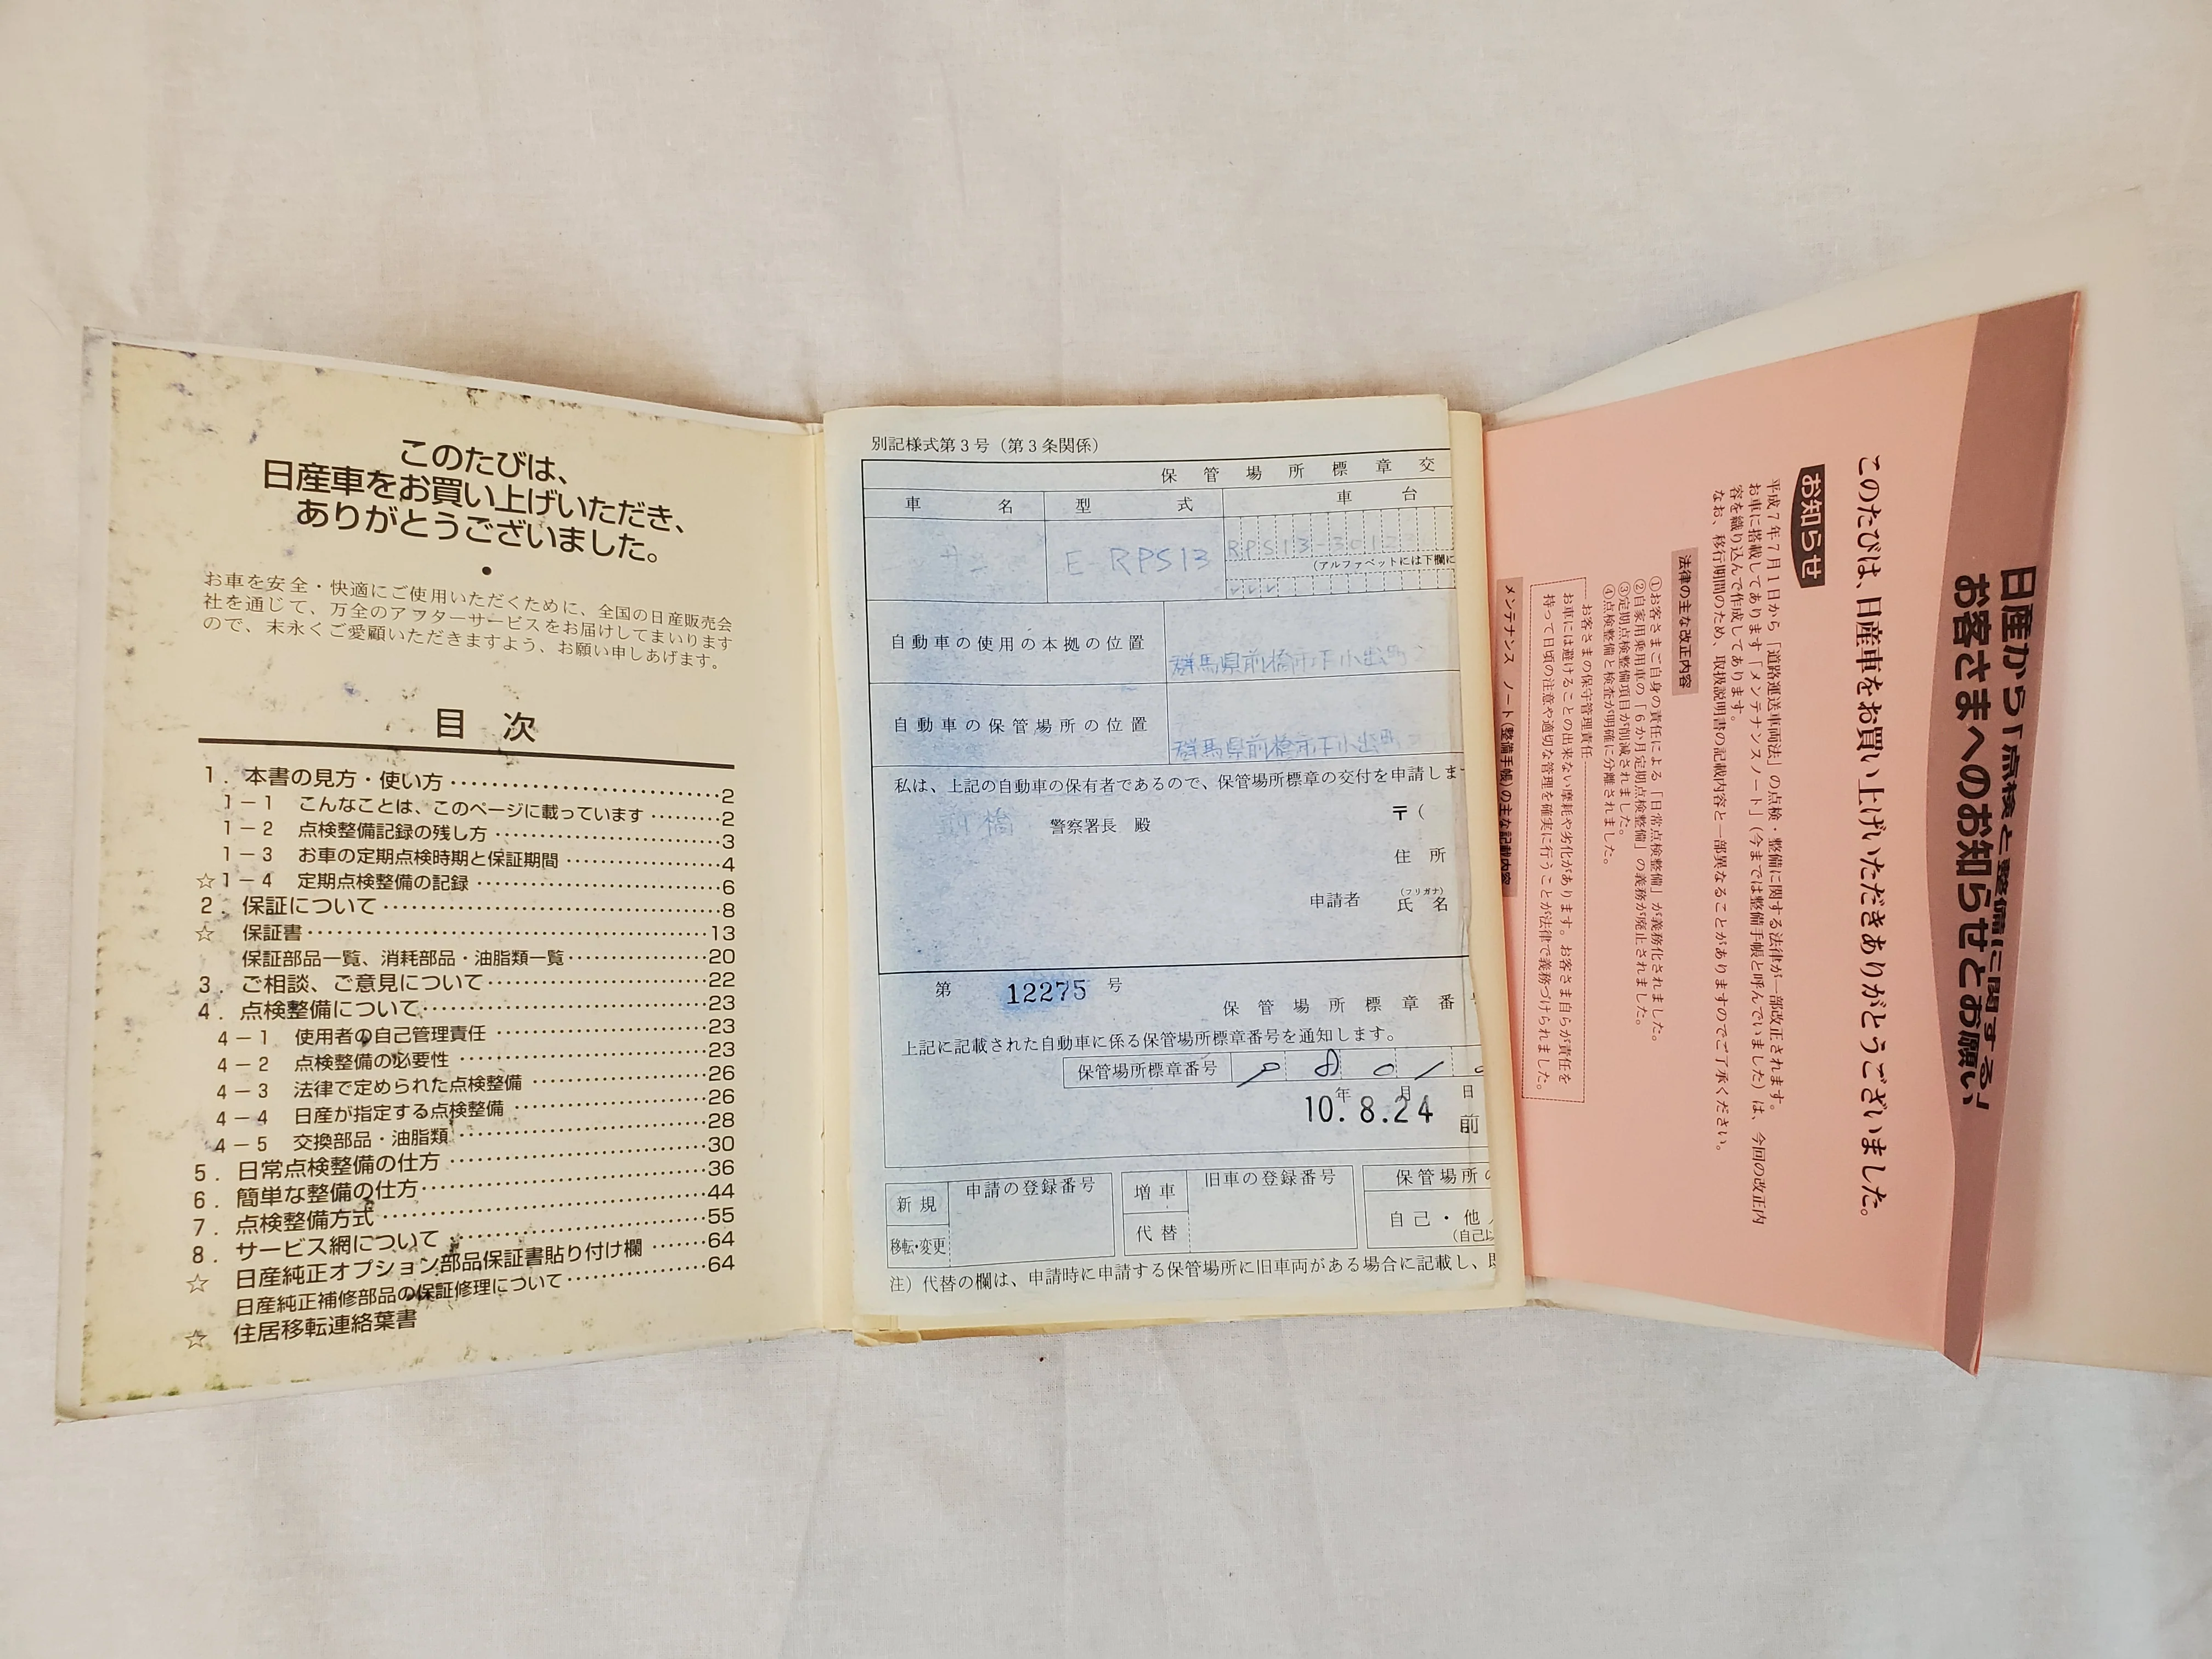 このたびは、
日産車をお買い上げいただき、
ありがとうございました。
●
お車を安全・快適にご使用いただくために、全国の日産販売会
社を通じて、万全のアフターサービスをお届けしてまいります
ので、末永くご愛顧いただきますよう、お願い申しあげます。
目 次
1. 本書の見方・使い方 2
1－1 こんなことは、このページに載っています 2
1－2 点検整備記録の残し方 3
1－3 お車の定期点検時期と保証期間 4
☆1－4 定期点検整備の記録 6
2. 保証について 8
☆ 保証書 13
保証部品一覧、消耗部品・油脂類一覧 20
3. ご相談、ご意見について 22
4. 点検整備について 23
4－1 使用者の自己管理責任 23
4－2 点検整備の必要性 23
4－3 法律で定められた点検整備 26
4－4 日産が指定する点検整備 26
4－5 交換部品・油脂類 28
5. 日常点検整備の仕方 30
6. 簡単な整備の仕方 36
7. 点検整備方式 44
8. サービス網について 55
☆ 日産純正オプション部品保証書貼り付け欄 64
日産純正補修部品の保証修理について 64
☆ 住居移転連絡葉書
別記様式第3号（第3条関係）
保 管 場 所 標 章 交
車 名 型 式 車 台
E RPS13 RPS13-3012
（アルファベットには下欄に
自動車の使用の本拠の位置
群馬県前橋市下小出町
自動車の保管場所の位置
群馬県前橋市下小出町
私は、上記の自動車の保有者であるので、保管場所標章の交付を申請しま
前橋 警察署長 殿
〒（
住 所
申請者 （フリガナ）
氏 名
第 12275 号
保 管 場 所 標 章 番
上記に記載された自動車に係る保管場所標章番号を通知します。
保管場所標章番号
年 月 日
10. 8.24 前
新 規 申請の登録番号 増 車 旧車の登録番号 保管場所の
移転・変更 代 替 自 己 ・ 他
（自己以
注）代替の欄は、申請時に申請する保管場所に旧車両がある場合に記載し、
日産から「点検と整備に関する」
お客さまへのお知らせとお願い
このたびは、日産車をお買い上げいただきありがとうございました。
お知らせ
平成7年7月1日から「道路運送車両法」の点検・整備に関する法律が一部改正されます。
お車に搭載してあります「メンテナンスノート」（今までは整備手帳と呼んでいました）は、今回の改正内
容を織り込んで作成してあります。
なお、移行期間のため、取扱説明書の記載内容と一部異なることがありますのでご了承ください。
法律の主な改正内容
①お客さまご自身の責任による「日常点検整備」が義務化されました。
②自家用乗用車の「6か月定期点検整備」の義務が廃止されました。
③定期点検整備項目が削減されました。
④点検整備と検査が明確に分離されました。
お客さまの保守管理責任
お車には避けることの出来ない摩耗や劣化があります。お客さま自らが責任を
持って日頃の注意や適切な管理を確実に行うことが法律で義務づけられました。
メンテナンス ノート（整備手帳）の主な記載内容